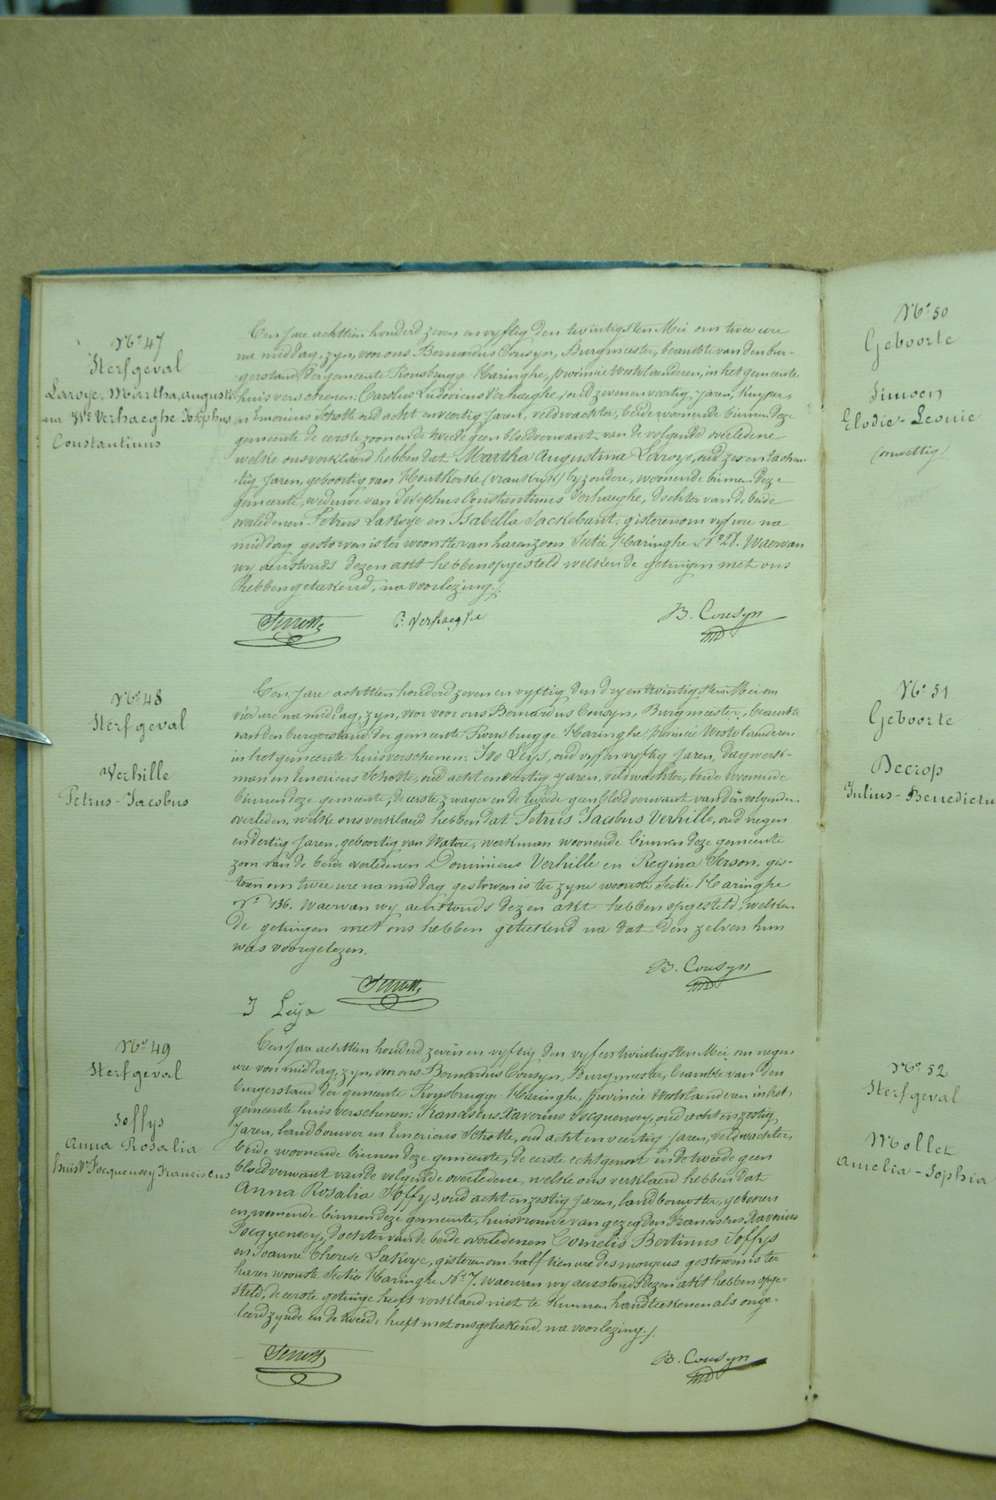 N° 47
Sterfgeval
Laroye, Martha, august
na We Verhaeghe Josephus
Constantinus
Een Jare achttien honderd zeven en vyftig den twintigsten Mei om twee ure
na middag, zyn, voor ons Bernardus Cousyn, Burgmeester, beambte van den bur-
gerstand der gemeente Rousbrugge Haringhe, provincie Westvlaanderen, in het gemeente
huis verschenen: Carolus Ludovicus Verhaeghe, oud zevenenveertig Jaren, Kuyper
en Emericus Schotte oud acht en veertig Jaren, veldwachter, beide wonende binnen deze
gemeente de eerste zoon en de tweede geen bloedverwant van de volgende overledene
welke ons verklaerd hebben dat Martha Augustina Laroye, oud zes en tachen-
tig Jaren, geboortig van Houtkerke (Vrankryk) byzondere, woonende binnen deze
gemeente, weduwe van Josephus Constantinus Verhaeghe, dochter van de beide
overledenen Petrus Laroye en Isabella Jackebant, gisteren om vyf ure na
middag gestorven is ter woonste van haren zoon Sectie Haringhe N° 28. Waervan
wy aenstonds dezen akt hebben opgesteld welken de getuigen met ons
hebben geteekend, na voorlezing.
C. Verhaeghe
B. Cousyn
N° 48
Sterfgeval
Verhille
Petrus-Jacobus
Een Jare achttien honderd zeven en vyftig den dry en twintigsten Mei om
vier ure na middag, zyn, voor ons Bernardus Cousyn, Burgmeester, beambte
van den burgerstand der gemeente Rousbrugge Haringhe provincie Westvlaanderen
in het gemeente huis verschenen: Ivo Leys, oud vyf en vyftig Jaren, dagwerk-
man en Emericus Schotte, oud acht en veertig Jaren, veldwachter, beide woonende
binnen deze gemeente, de eerste zwager en de tweede geen bloedverwant van den volgenden
overleden, welke ons verklaerd hebben dat Petrus Jacobus Verhille, oud negen
en dertig Jaren, geboortig van Watou, werkman woonende binnen deze gemeente
zoon van de beide overledenen Dominicus Verhille en Regina Terson, gis-
teren om twee ure na middag gestorven is ter zyne woonste Sectie Haringhe
N° 136. Waervan wy aenstonds dezen akt hebben opgesteld, welken
de getuigen met ons hebben geteekend na dat den zelven hun
was voorgelezen.
B. Cousyn
I Leys
N° 49
Sterfgeval
Joffys
Anna Rosalia
huisv Focquenoey Franciscus
Een Jare achttien honderd zeven en vyftig, den vyfentwintigsten Mei, om negen
ure voor middag, zyn, voor ons Bernardus Cousyn, Burgmeester, beambte van den
burgerstand der gemeente Rousbrugge Haringhe, provincie Westvlaanderen in het
gemeente huis verschenen: Franciscus Xaverius Focquenoey, oud acht en zestig
Jaren, landbouwer en Emericus Schotte, oud acht en veertig Jaren, veldwachter,
beide woonende binnen deze gemeente, de eerste echtgenoot en de tweede geen
bloedverwant van de volgende overledene, welke ons verklaerd hebben dat
Anna Rosalia Joffys, oud acht en zestig Jaren, landbouwster, geboren
en woonende binnen deze gemeente, huisvrouwe van gezegden Franciscus Xaverius
Focquenoey, dochter van de beide overledenen Cornelis Bertinus Joffys
en Joanne Therese Laroye, gisteren om half tien ure des morgens gestorven is ter
harer woonste Sectie Haringhe N° 7. waervan wy aenstonds dezen akt hebben opge-
steld, de eerste getuige heeft verklaerd niet te kunnen handteekenen als onge-
leerd zynde en de tweede heeft met ons geteekend, na voorlezing./.
B. Cousyn
N° 50
Geboorte
Simoen
Elodie-Leonie
(onwettig)
N° 51
Geboorte
Decrop
Julius-Benedictu
N° 52
Sterfgeval
Mollet
Amelia-Sophia